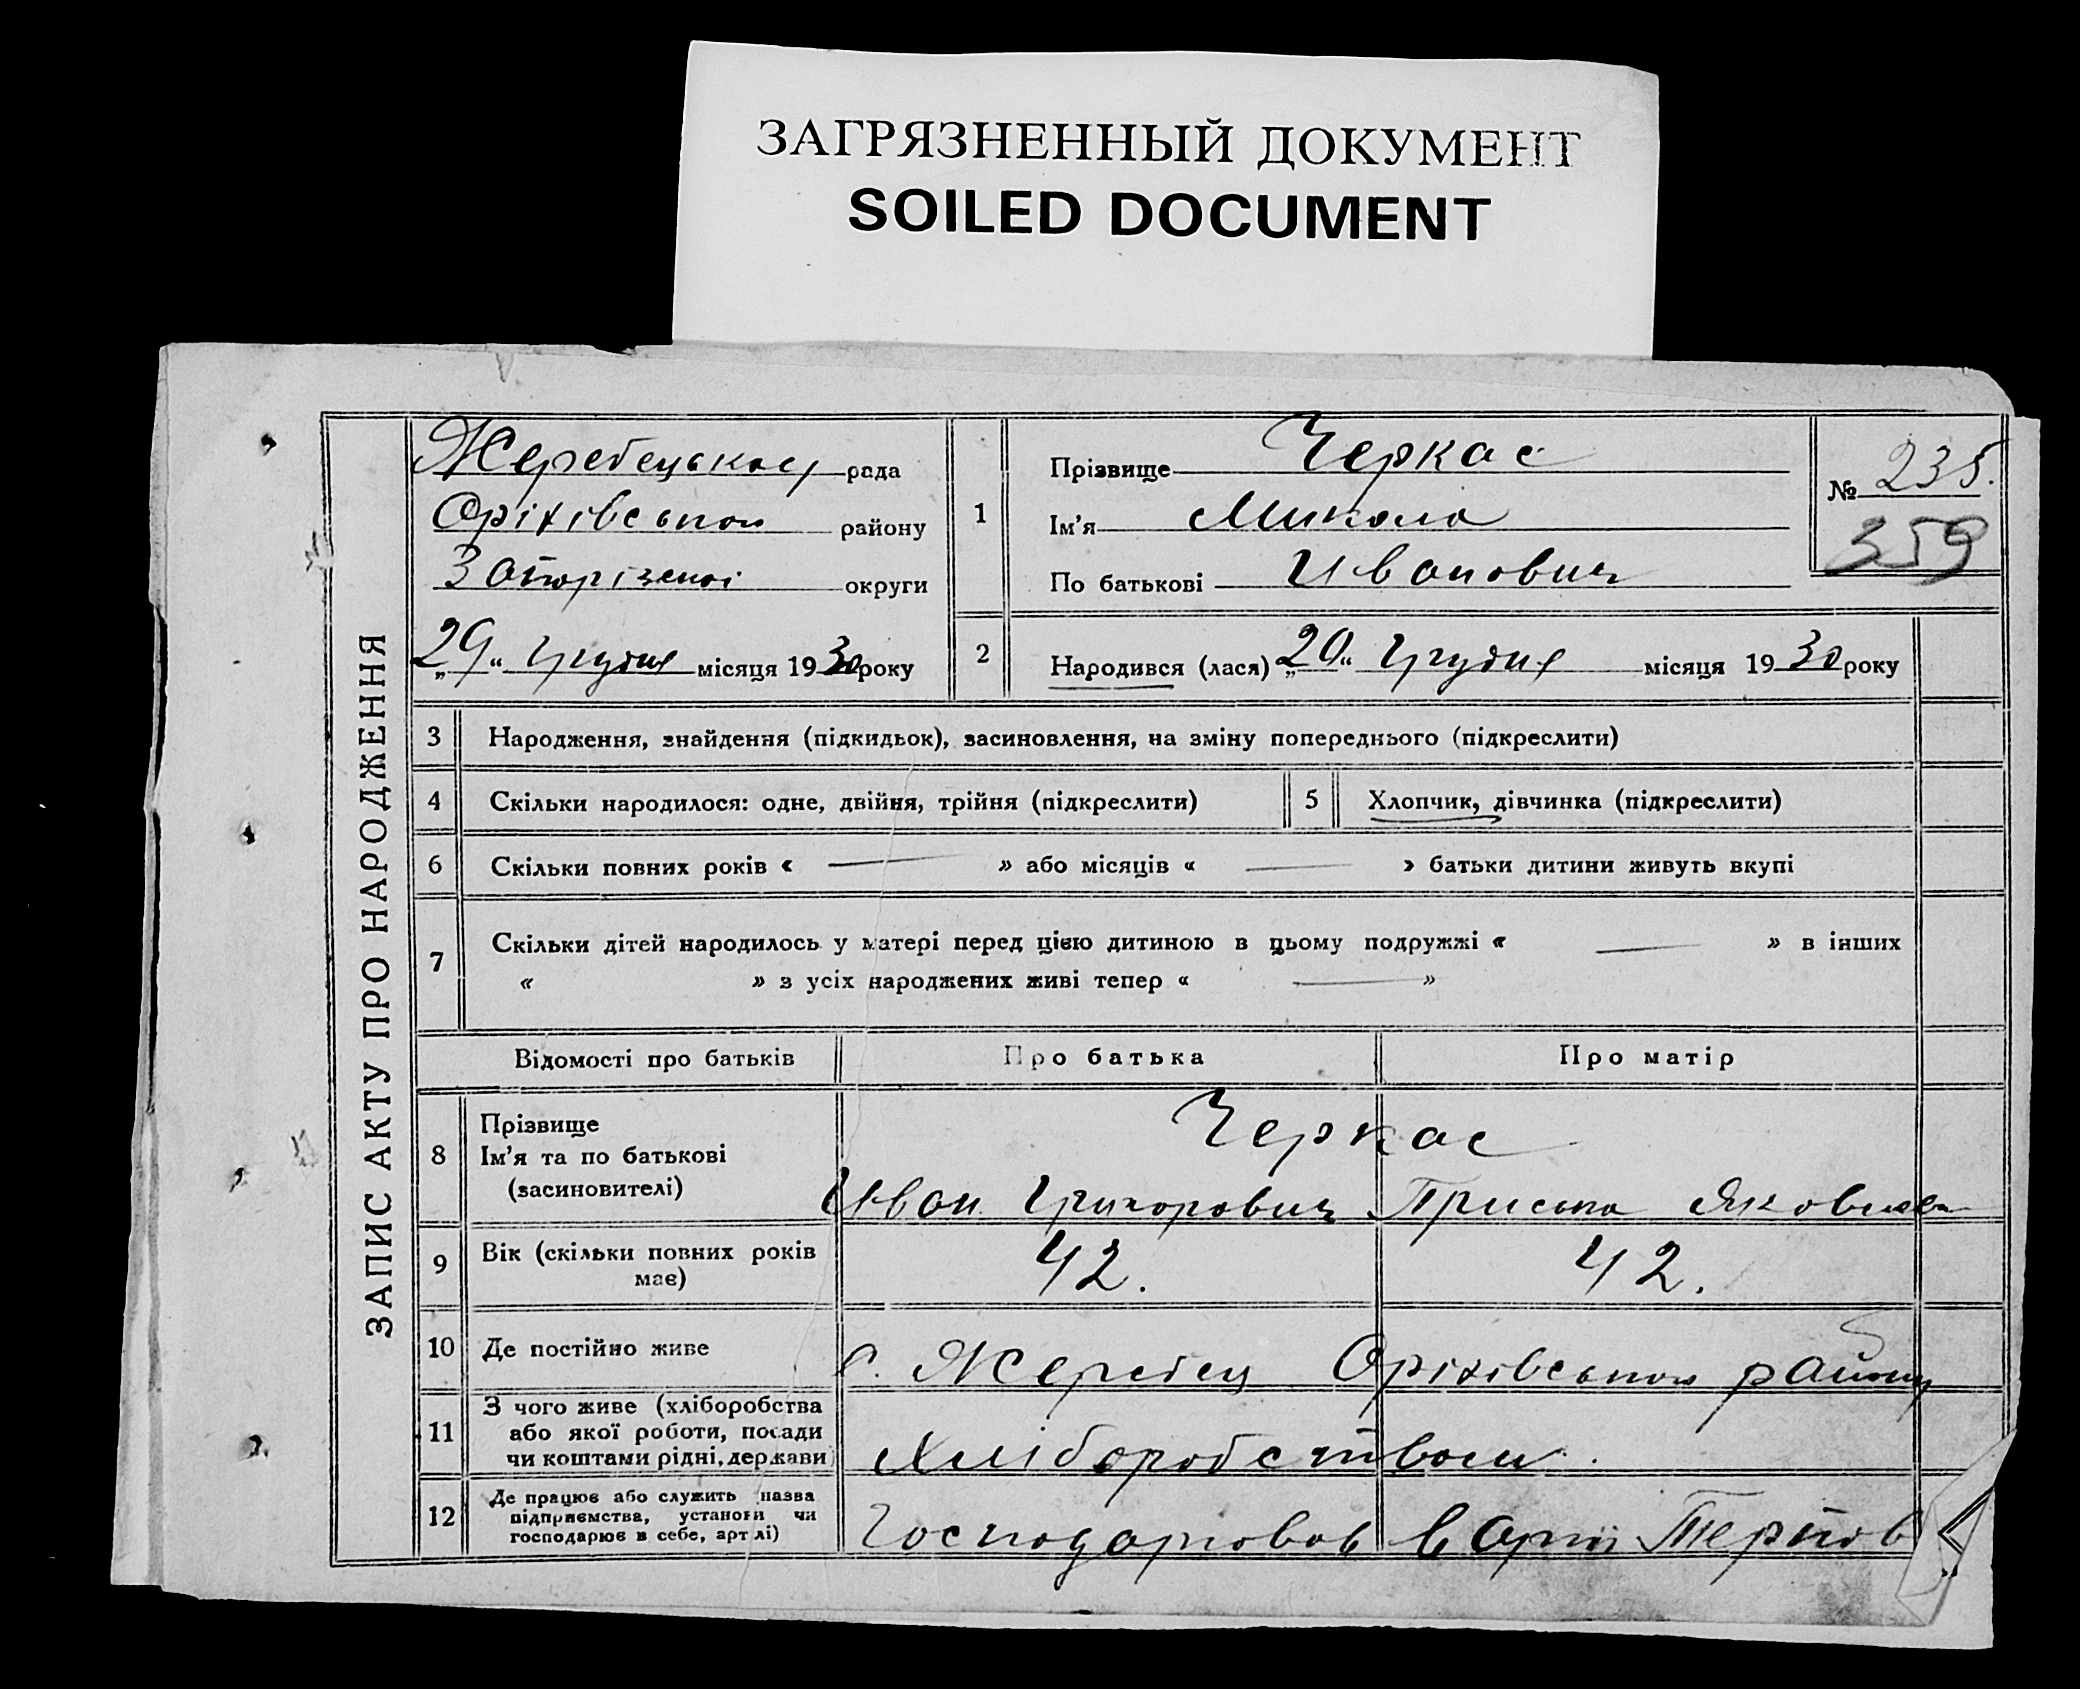 ЗАГРЯЗНЕННЫЙ ДОКУМЕНТ
SOILED DOCUMENT
ЗАПИС АКТУ ПРО НАРОДЖЕННЯ
Жеребецької рада
Оріхівського району
Запорізької округи
„29“ Грудня місяця 1930 року
1
Прізвище Черкас
Ім'я Микола
По батькові Иванович
№ 235.
359
2
Народився (лася) „20“ Грудня місяця 1930 року
3 Народження, знайдення (підкидьок), засиновлення, на зміну попереднього (підкреслити)
4 Скільки народилося: одне, двійня, трійня (підкреслити) 5 Хлопчик, дівчинка (підкреслити)
6 Скільки повних років « — » або місяців « — » батьки дитини живуть вкупі
7 Скільки дітей народилось у матері перед цією дитиною в цьому подружжі « — » в інших
« » з усіх народжених живі тепер « — »
Відомості про батьків Про батька Про матір
8 Прізвище
Ім'я та по батькові
(засиновителі)
Черкас
Иван Григорович Приська Яковлева
9 Вік (скільки повних років
має)
42. 42.
10 Де постійно живе с. Жеребец Оріхівського району
11 З чого живе (хліборобства
або якої роботи, посади
чи коштами рідні, держави)
Хліборобством.
12 Де працює або служить назва
підприємства, установи чи
господарює в себе, артілі)
Господарював в